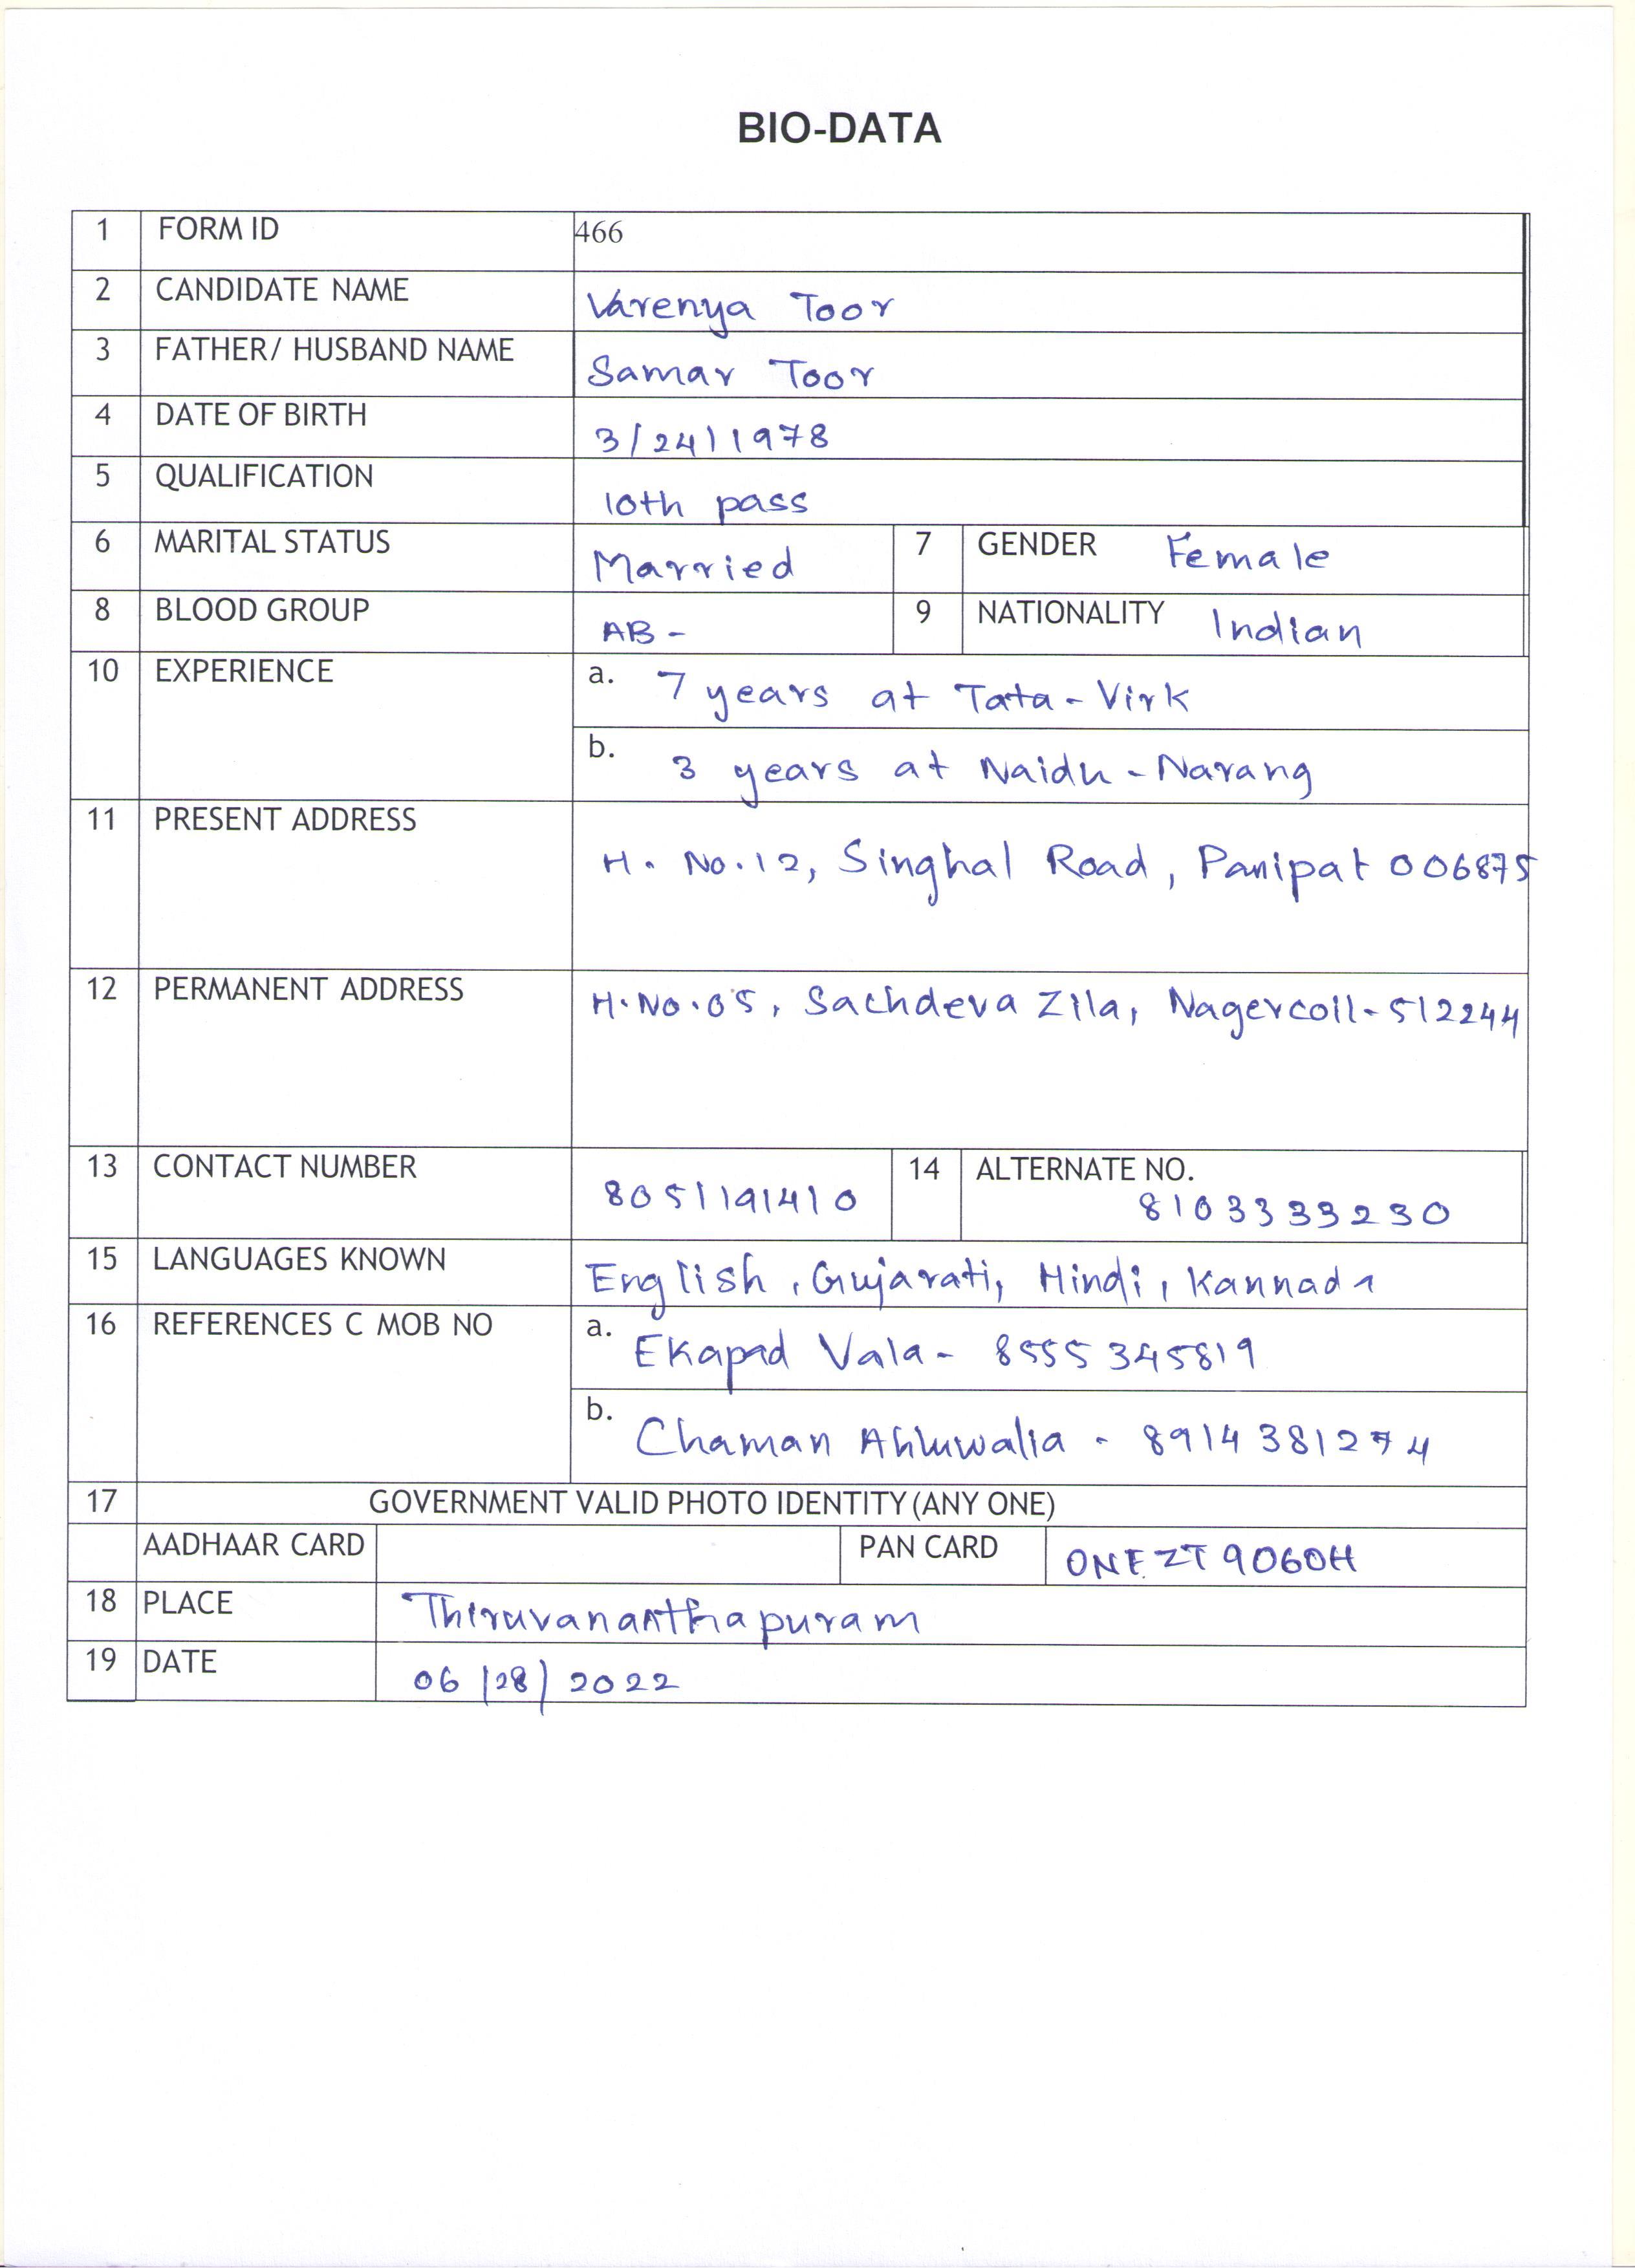 BIO-DATA
1 FORM ID 466
2 CANDIDATE NAME Varenya Toor
3 FATHER/ HUSBAND NAME Samar Toor
4 DATE OF BIRTH 3/24/1978
5 QUALIFICATION 10th pass
6 MARITAL STATUS Married 7 GENDER Female
8 BLOOD GROUP AB- 9 NATIONALITY Indian
10 EXPERIENCE a. 7 years at Tata-Virk
b. 3 years at Naidu-Narang
11 PRESENT ADDRESS
H. No. 12, Singhal Road, Panipat 006875
12 PERMANENT ADDRESS H.No.05, Sachdeva Zila, Nagercoil-512244
13 CONTACT NUMBER 8051191410 14 ALTERNATE NO. 8103333230
15 LANGUAGES KNOWN English, Gujarati, Hindi, Kannada
16 REFERENCES C MOB NO a. Ekapad Vala- 8555345819
b. Chaman Ahluwalia - 8914381274
17 GOVERNMENT VALID PHOTO IDENTITY (ANY ONE)
AADHAAR CARD PAN CARD ONEZT9060H
18 PLACE Thiruvananthapuram
19 DATE 06/28/2022